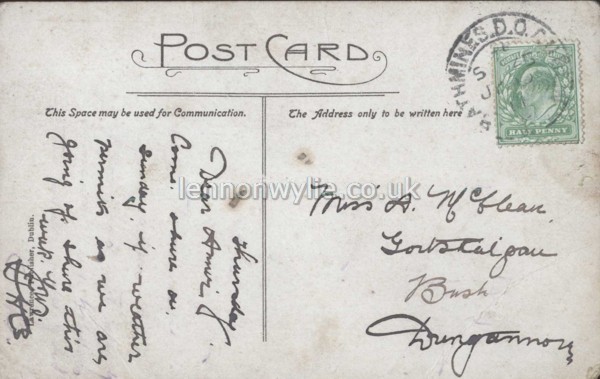 POST CARD
This Space may be used for Communication.
The Address only to be written here
RATHMINES. D.O.
HALF PENNY
lennonwylie.co.uk
Thursday
Dear Annie,
Come down on
Sunday if weather
permits as we are
going up there this
week
Miss A. McClean
Bush
Dungannon
Dublin.